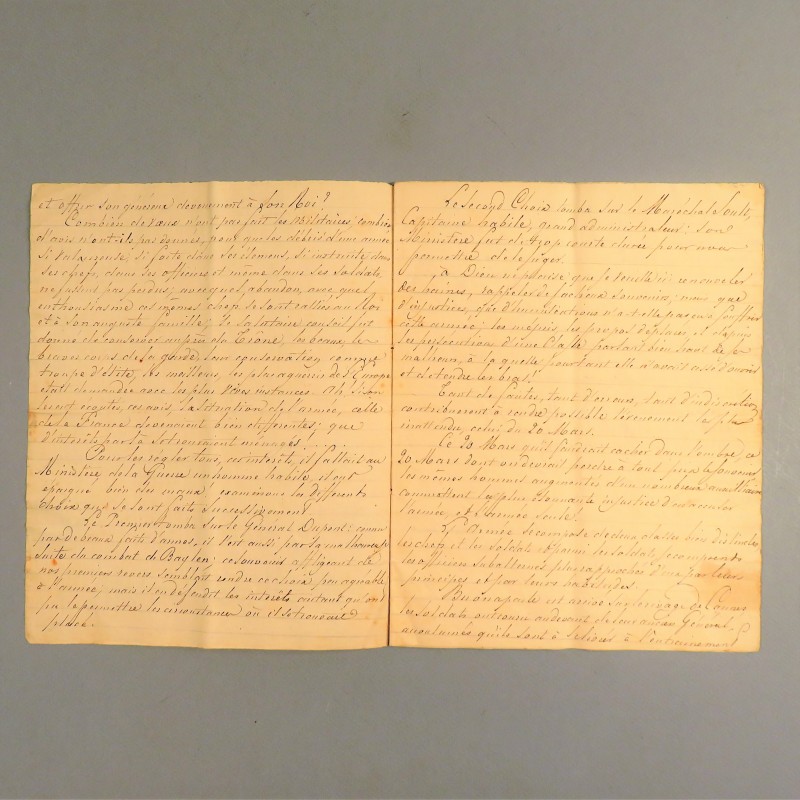 et offrir son généreux dévouement à son Roi?
Combien de vœux n'ont pas fait les Militaires, combien
d'avis n'ont ils pas donnés, pour que les débris d'une armée
si valeureuse, si forte dans ses élemens, si instruite dans
ses chefs, dans ses officiers et même dans ses soldats
ne fussent pas perdus; avec quel abandon, avec quel
enthousiasme ces mêmes chefs se sont ralliés au Roi
et à son auguste famille; le salutaire conseil fut
donné de conserver auprès du Trône, les beaux, les
braves corps de la garde. Leur conservation comme
troupe d'élite, les meilleurs, les plus aguerris de l'Europe
était demandée avec les plus vives instances. Ah! si on
écoutés, ces avis, la situation de l'armée, celle
de la France devenaient bien différentes; que
d'intérêts par là se trouvaient ménagés!.....
Pour les régler tous, ces intérêts, il fallait au
Ministère de la Guerre un homme habile, il eut
épargné bien des maux examinons les différents
choix qui se sont faits successivement.
Le Premier tomba sur le Général Dupont: connu
par de beaux faits d'armes, il l'est aussi par la malheureuse
suite du combat de Baylen; ce souvenir affligeant de
nos premiers revers sembla rendre ce choix peu agréable
à l'armée, mais il en défendit les intérêts autant qu'ont
pu le permettre les circonstances où il se trouvait
placé.
Le second Choix tomba sur le Maréchal Soult,
Capitaine habile, grand administrateur: son
Ministère fut de trop courte durée pour nous
permettre de le juger.
à Dieu ne plaise que je veuille ici renouveler
des haines, rappeler de fâcheux souvenirs; mais que
d'injustices, que d'humiliations n'a t elle pas eu à souffrir
cette armée; les mépris, les propos déplacés et depuis
les persécutions d'une Classe partant bien haut de
malheur, à laquelle pourtant elle n'avait cessé d'ouvrir
et de tendre les bras!
Tant de fautes, tant d'erreurs, tant d'indiscrétions
contribuèrent à rendre possible l'évènement le plus
inattendu, celui du 20 Mars.
Ce 20 Mars qu'il faudrait cacher dans l'ombre, ce
20 Mars dont on devrait perdre à tout prix le souvenir
les mêmes hommes augmentés d'un nombreux auxiliaire
commettent la plus étonnante injustice d'en accuser
l'armée, et l'armée seule!
L'Armée se compose de deux classes bien distinctes
les chefs et le soldat. Parmi les soldats je comprends
les officiers subalternes plus rapprochés d'eux par leurs
principes et par leurs habitudes.
Buonaparte est arrivé sur le rivage de Cannes
les soldats ont couru au devant de leur ancien Général
accoutumés qu'ils sont à se livrer à l'entraînement